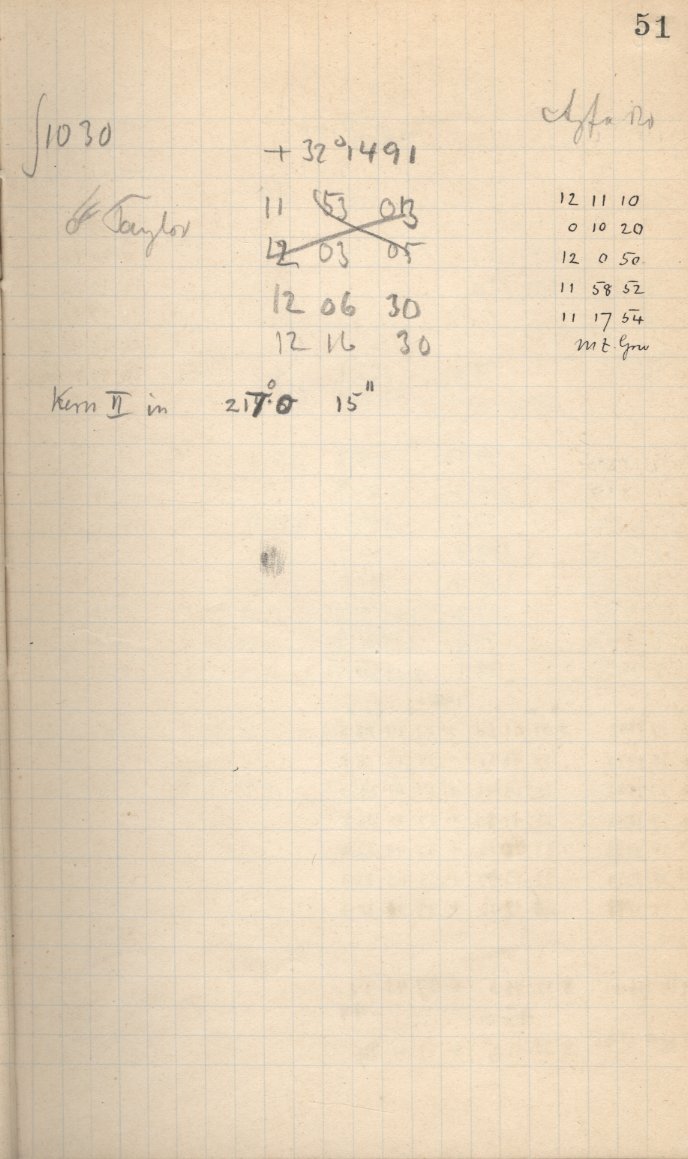 51
∫1030
+32°1491
Taylor
11 53 03
12 03 05
12 06 30
12 16 30
12 11 10
0 10 20
12 0 50
11 58 52
11 17 54
Kern II in 217.0° 15"